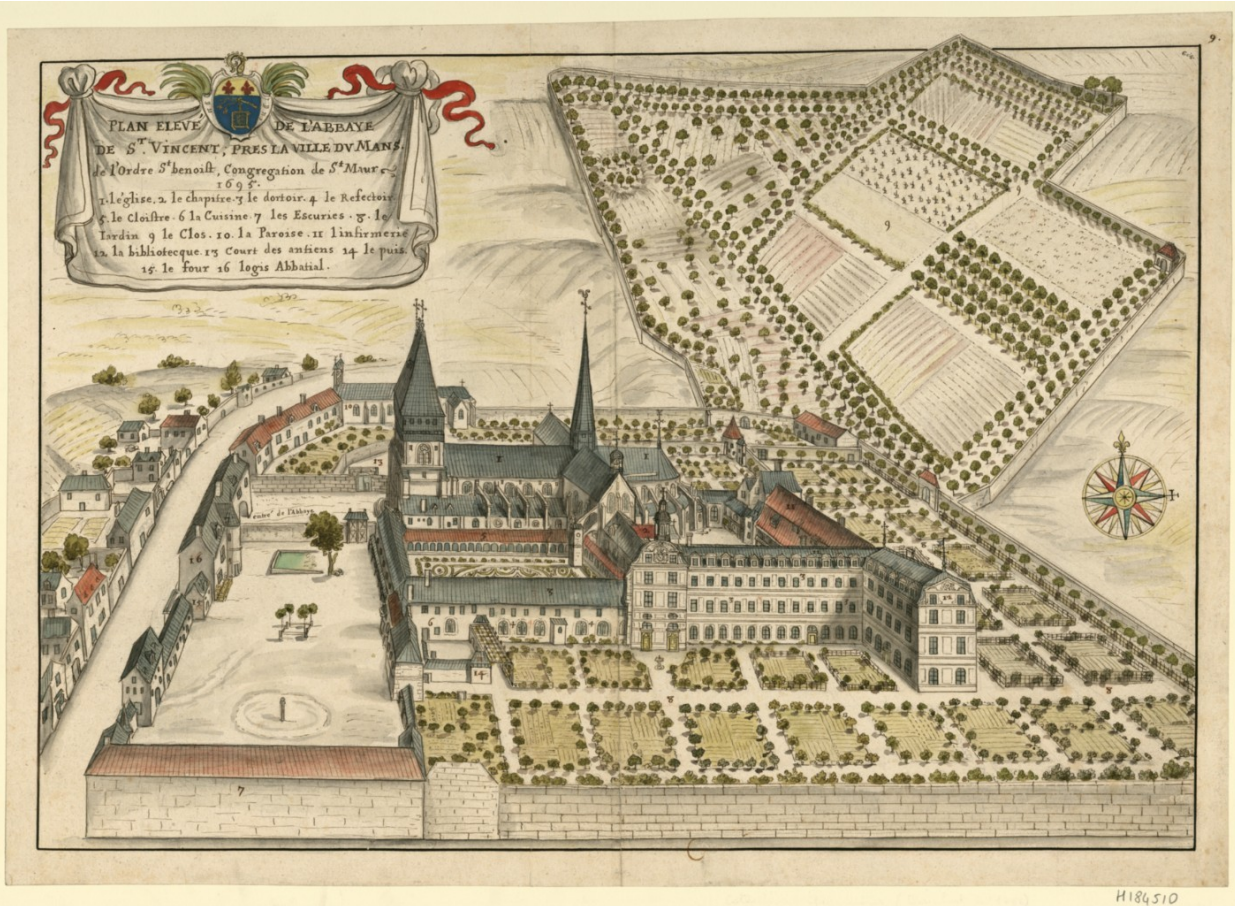 PLAN ELEVÉ DE L'ABBAYE
DE S.T VINCENT, PRES LA VILLE DV MANS.
de l'Ordre St benoist, Congregation de St Maur
1695.
1. l'église, 2. le chapitre. 3 le dortoir. 4 le Refectoir
5. le Cloistre. 6 la Cuisine. 7 les Escuries. 8. le
Iardin 9 le Clos. 10. la Paroise. 11 l'infirmerie
12. la bibliotecque. 13 Court des antiens 14 le puis.
15. le four 16 logis Abbatial.
9.
9
9
13
1
1
entré de l'Abbaye
5
11
16
3
6
4
12
14
8
8
7
H184510